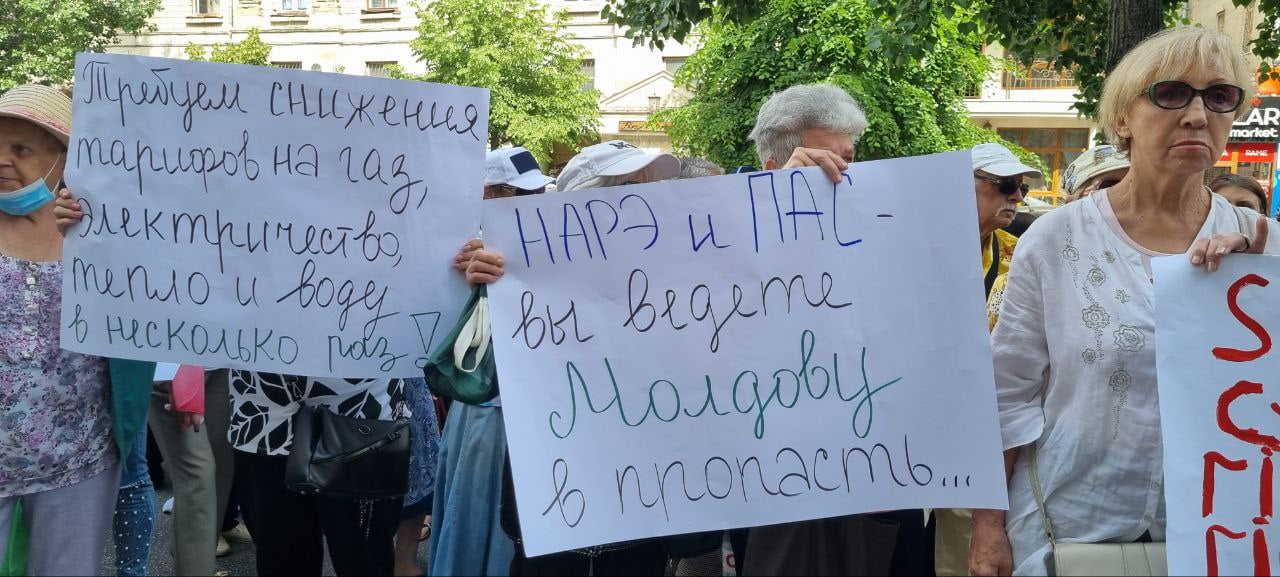 Требуем снижения
тарифов на газ,
электричество,
тепло и воду
в несколько раз!
НАРЭ и ПАС -
вы ведете
Молдову
в пропасть...
LAR
market
RAME